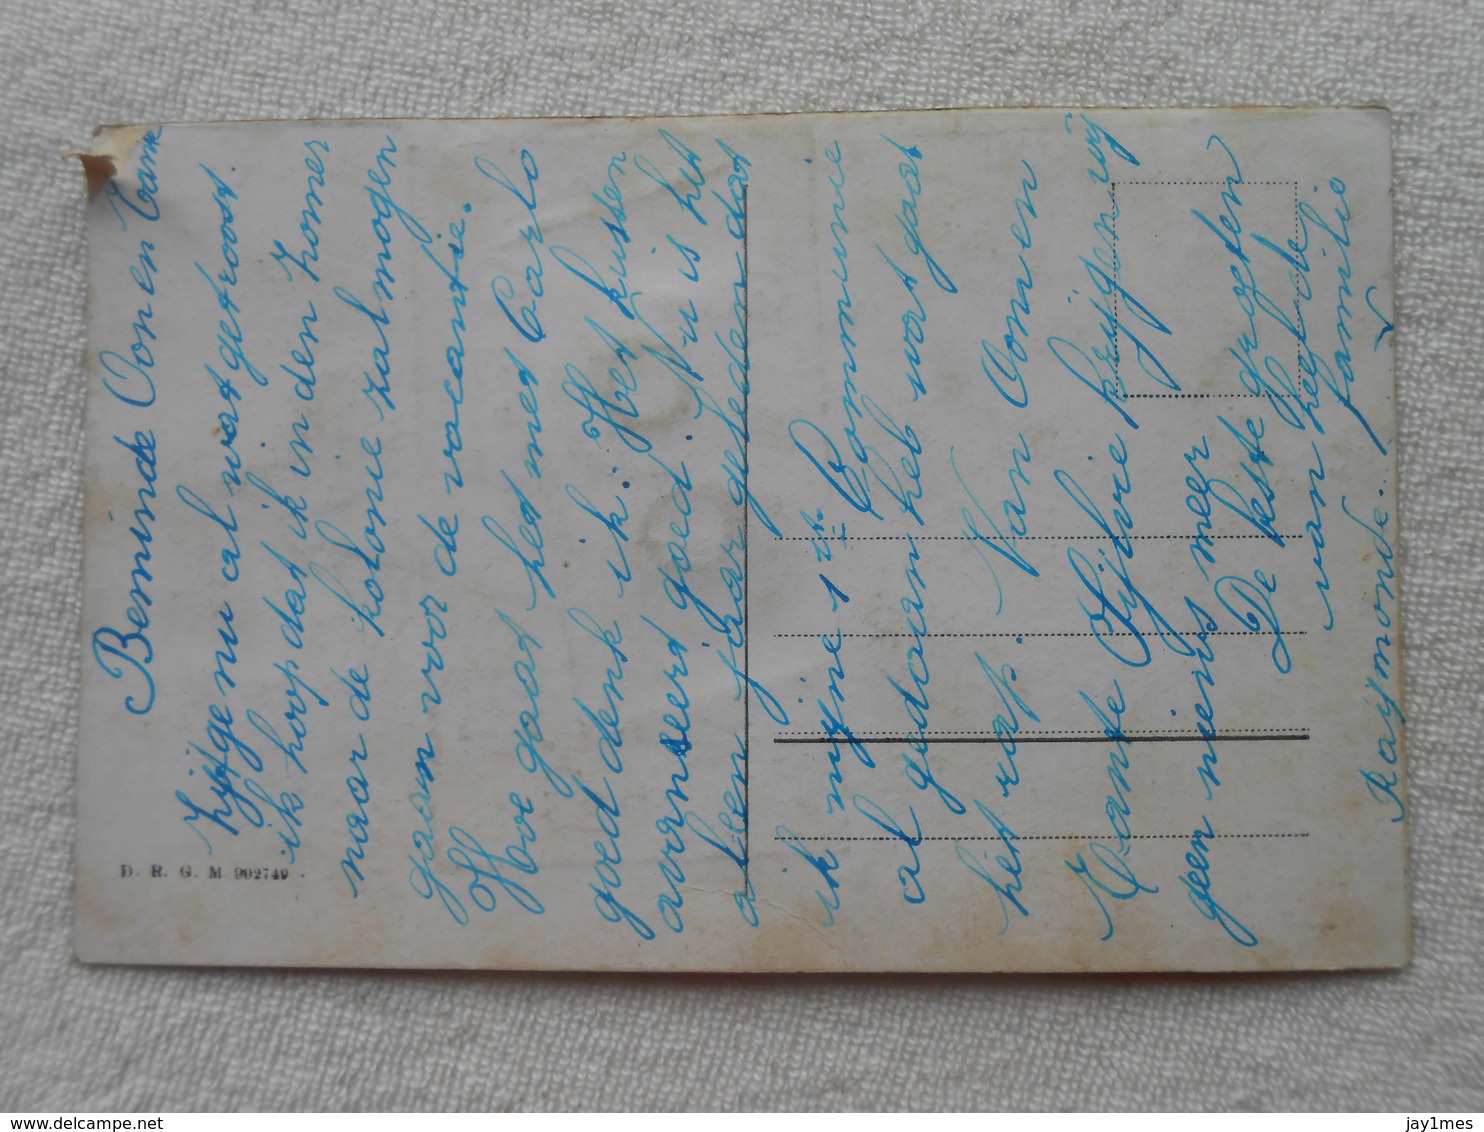 Beminde Oom en Tante
Zijt ge nu al wat getroost.
ik hoop dat ik in den zomer
naar de kolonie zal mogen
gaan voor de vacantie.
Hoe gaat het met Carlo
goed denk ik. Het kussen
avanseert goed. Nu is het
aleen jaar geleden dat
ik mijne 1ste Communie
al gedaan heb wat gaat
het rap. Van Oom en
Tante Sylvie krijgen wij
geen nieuws meer
De beste groeten
van heel de
familie
Raymonde.
D. R. G. M 902749
delcampe.net
jay1mes